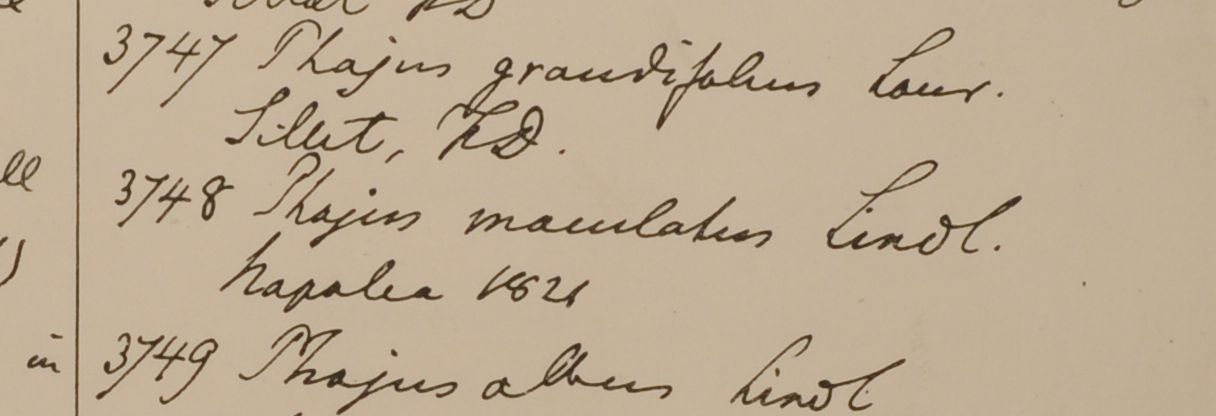 3747 Phajus grandifolius Lour.
Sillet, FD.
3748 Phajus maculatus Lindl.
Napalea 1821
in 3749 Phajus albus Lindl